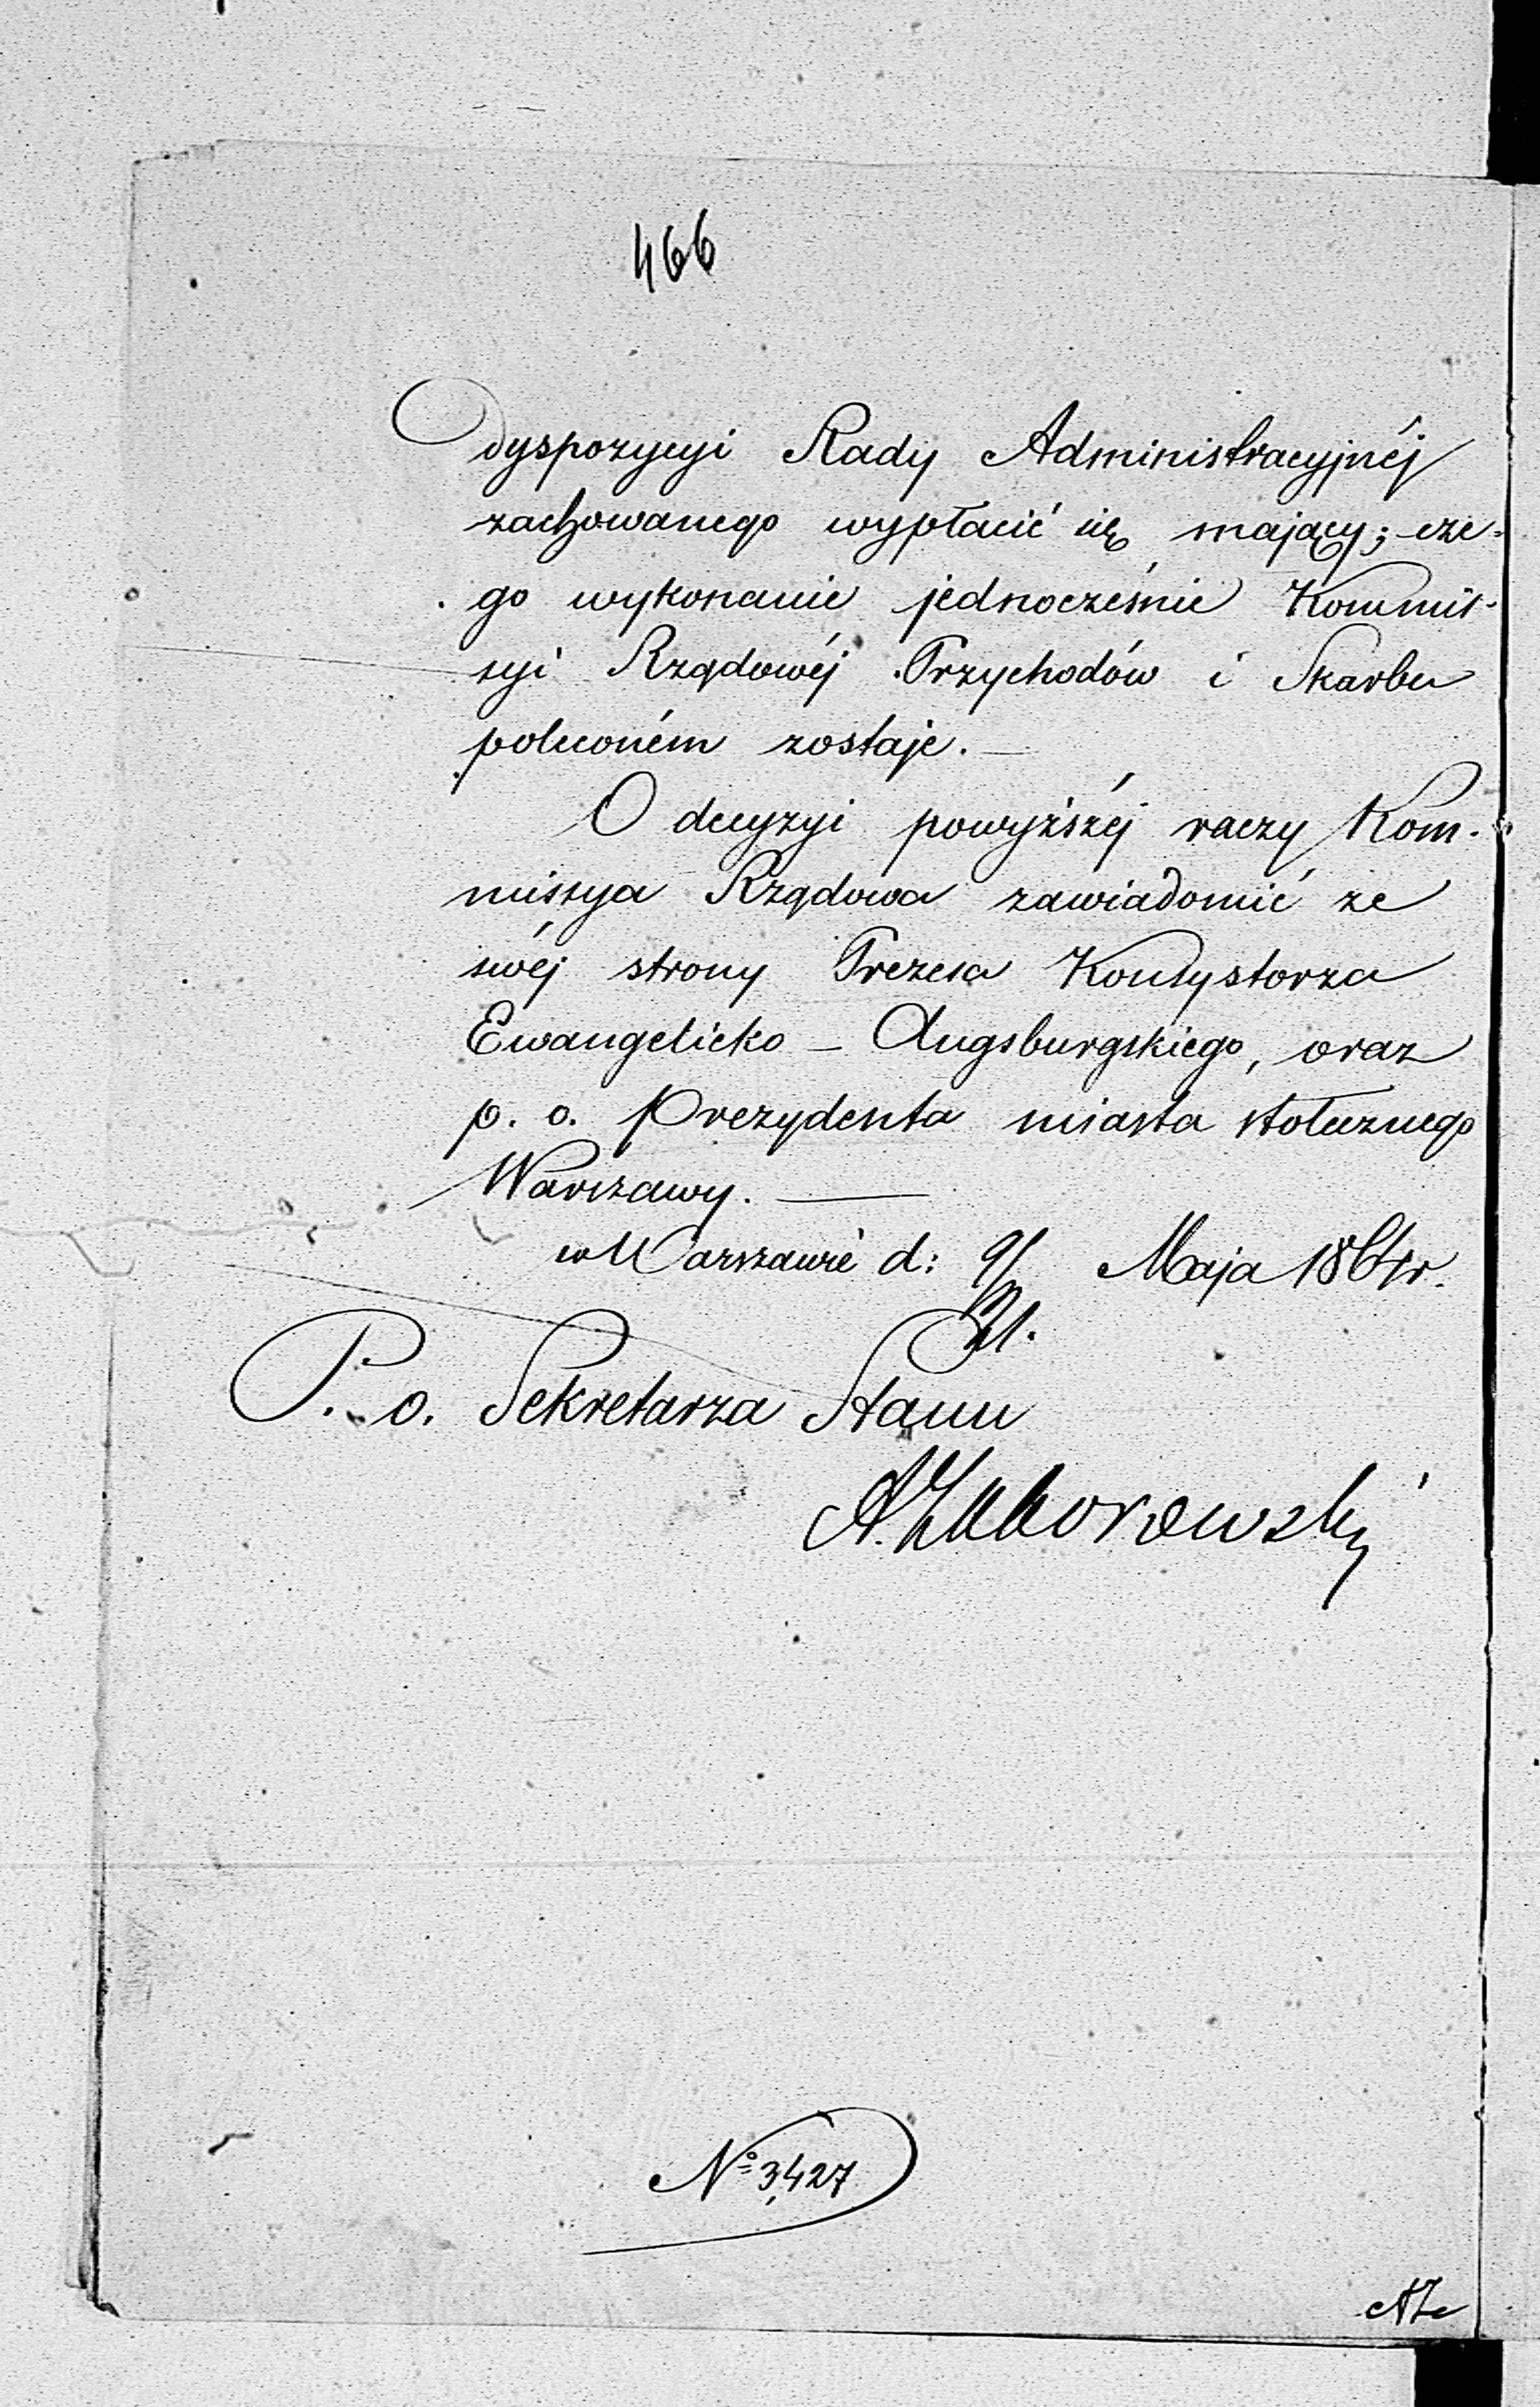 466
dyspozycyi Rady Administracyjnéj
zachowanego wypłacić się mający; cze-
go wykonanie jednocześnie Kommis-
syi Rządowéj Przychodów i Skarbu
poleconém zostaje. —
O decyzyi powyższéj raczy Kom-
missya Rządowa zawiadomić ze
swéj strony Prezesa Konsystorza
Ewangelicko - Augsburgskiego, oraz
p. o. Prezydenta miasta stołecznego
Warszawy. —
w Warszawie d: 9/21. Maja 1864 r.
P. o. Sekretarza Stanu
A. Zaborowski
No 3,427
AZ